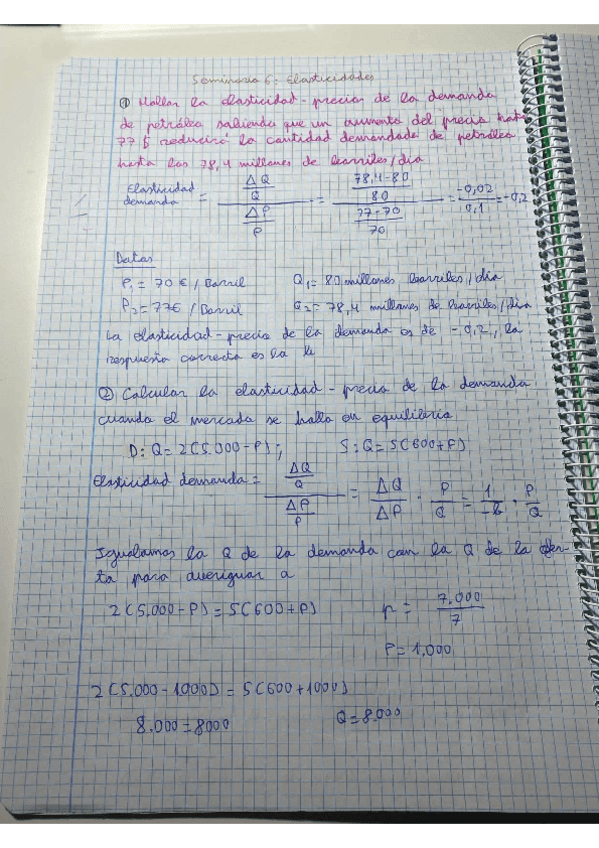 Seminario 6: Elasticidades
① Hallar la elasticidad-precio de la demanda
de petróleo sabiendo que un aumento del precio hasta
77 $ reducirá la cantidad demandada de petróleo
hasta los 78,4 millones de barriles/día
Elasticidad demanda = (ΔQ/Q)/(ΔP/P) = ((78,4-80)/80)/((77-70)/70) = -0,02/0,1 = -0,2
Datos
P₁ = 70 €/Barril Q₁ = 80 millones barriles/día
P₂ = 77€/Barril Q₂ = 78,4 millones de barriles/día
La elasticidad-precio de la demanda es de -0,2, la
respuesta correcta es la b
② Calcular la elasticidad-precio de la demanda
cuando el mercado se halla en equilibrio
D: Q = 2(5.000-P); S: Q = 5(600+P)
Elasticidad demanda = (ΔQ/Q)/(ΔP/P) = ΔQ/ΔP · P/Q = 1/-b · P/Q
Igualamos la Q de la demanda con la Q de la ofer-
ta para averiguar a
2(5.000-P) = 5(600+P) P = 7.000/7
P = 1.000
2(5.000-1000) = 5(600+1000)
8.000 = 8000 Q = 8.000